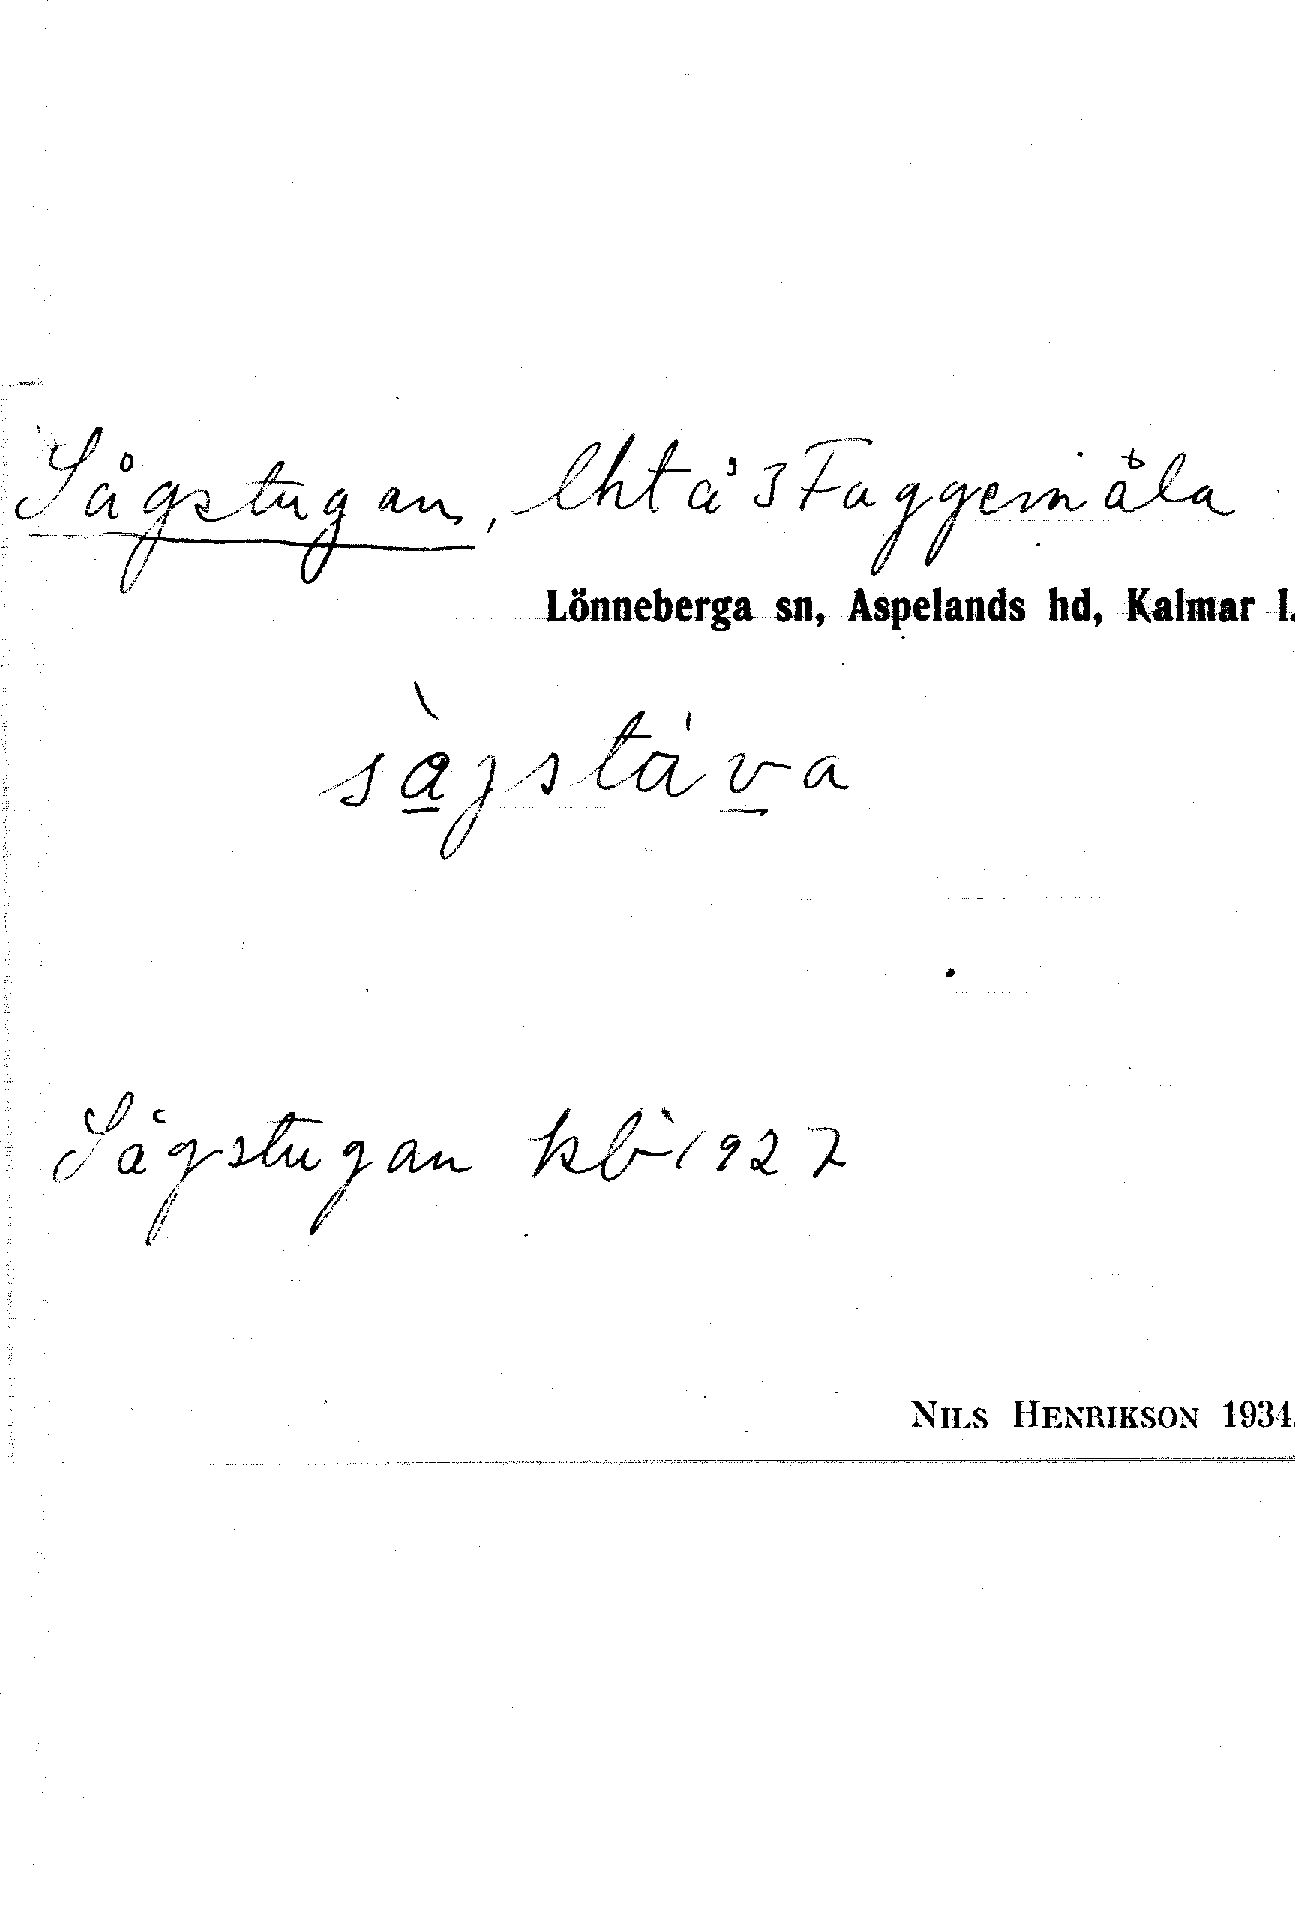 Sågstugan, lht å 3 Faggemåla
Lönneberga sn, Aspelands hd, Kalmar l.
sàgstáva
Sågstugan kb 1927
NILS HENRIKSON 1934.